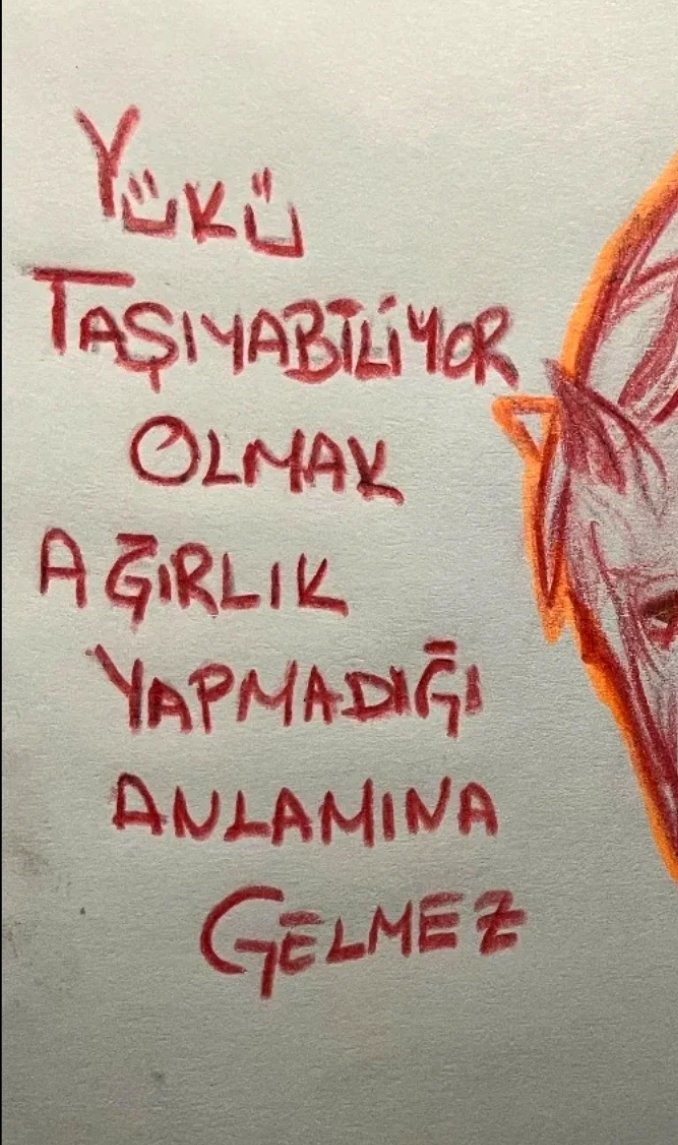 YÜKÜ
TAŞIYABİLİYOR
OLMAK
AĞIRLIK
YAPMADIĞI
ANLAMINA
GELMEZ